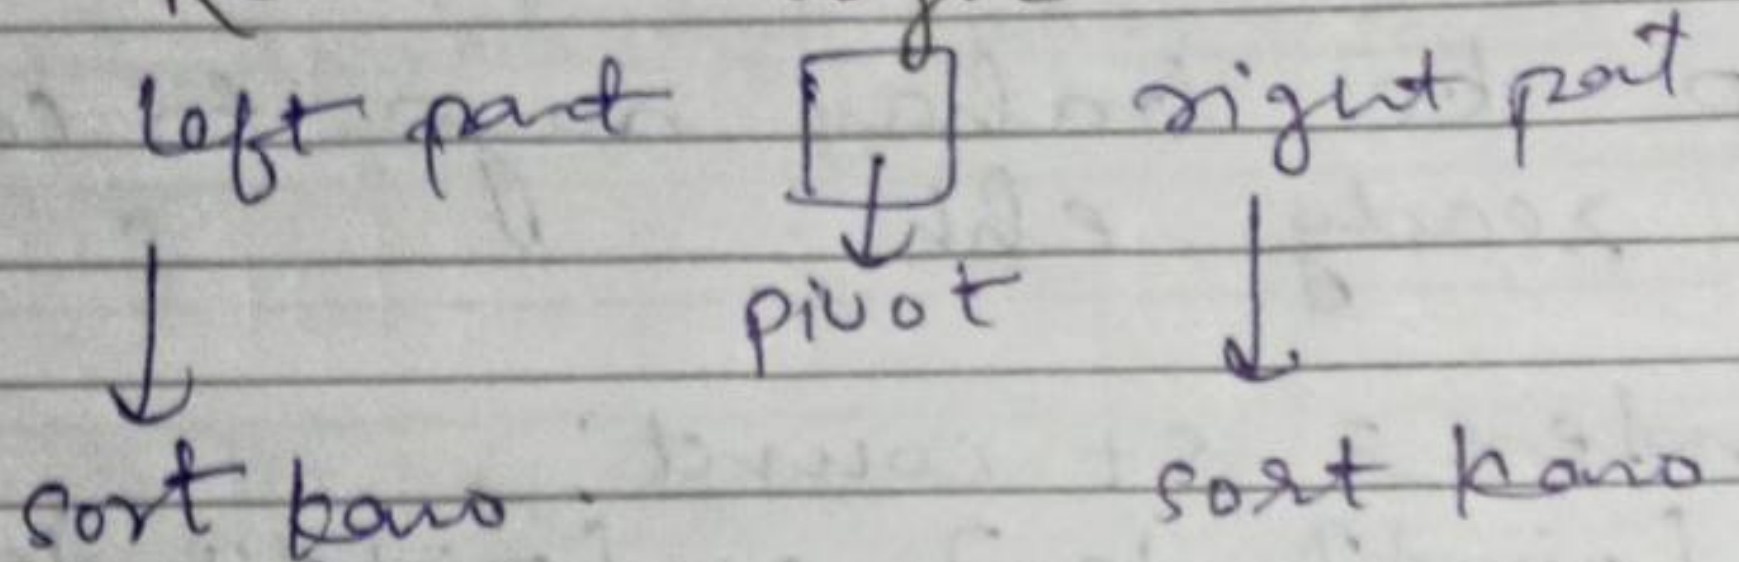 left part right part
pivot
sort karo sort karo